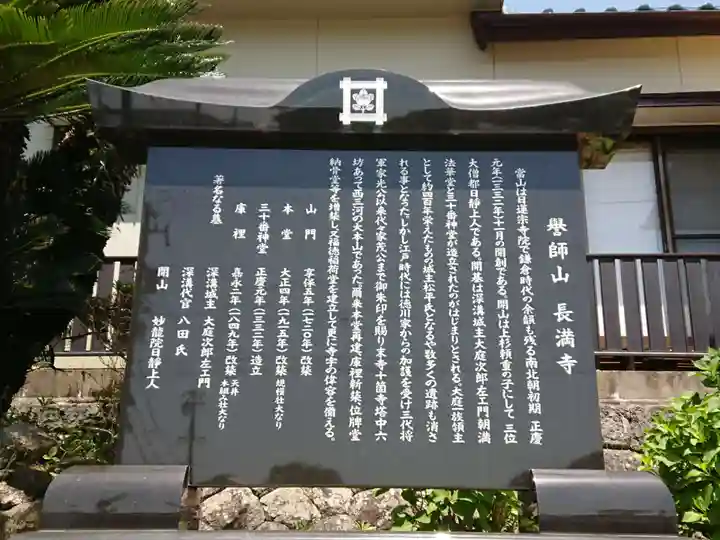 譽師山 長満寺
当山は日蓮宗寺院で鎌倉時代の余韻も残る南北朝初期 正慶
元年(一三三二年)十一月の開創である。開山は上杉頼重の子にして 三位
大僧都日静上人である。開基は深溝城主大庭次郎左エ門朝満
法華堂と三十番神堂が造立されたのがはじまりとされる。大庭一族領主
として約四百年栄えたものの城主松平氏となるや数多くの遺跡も消さ
れる事となった。しかし江戸時代には徳川家からの加護を受け三代将
軍家光公以来代々家茂公まで御朱印を賜り末寺十箇寺塔中六
坊あって西三河の大本山であった。爾来本堂再建、庫裡新築、位牌堂
納骨堂等を増築し又福徳稲荷堂を建立して真に寺字の偉容を備える。
山門 享保五年(一七二〇年)改築
本堂 大正四年(一九一五年)改築 規模壮大なり
三十番神堂 正慶元年(一三三二年)造立
庫裡 嘉永二年(一八四九年)改築 天井木組み壮大なり
著名なる墓
深溝城主 大庭次郎左エ門
深溝代官 八田氏
開山 妙龍院日静上人